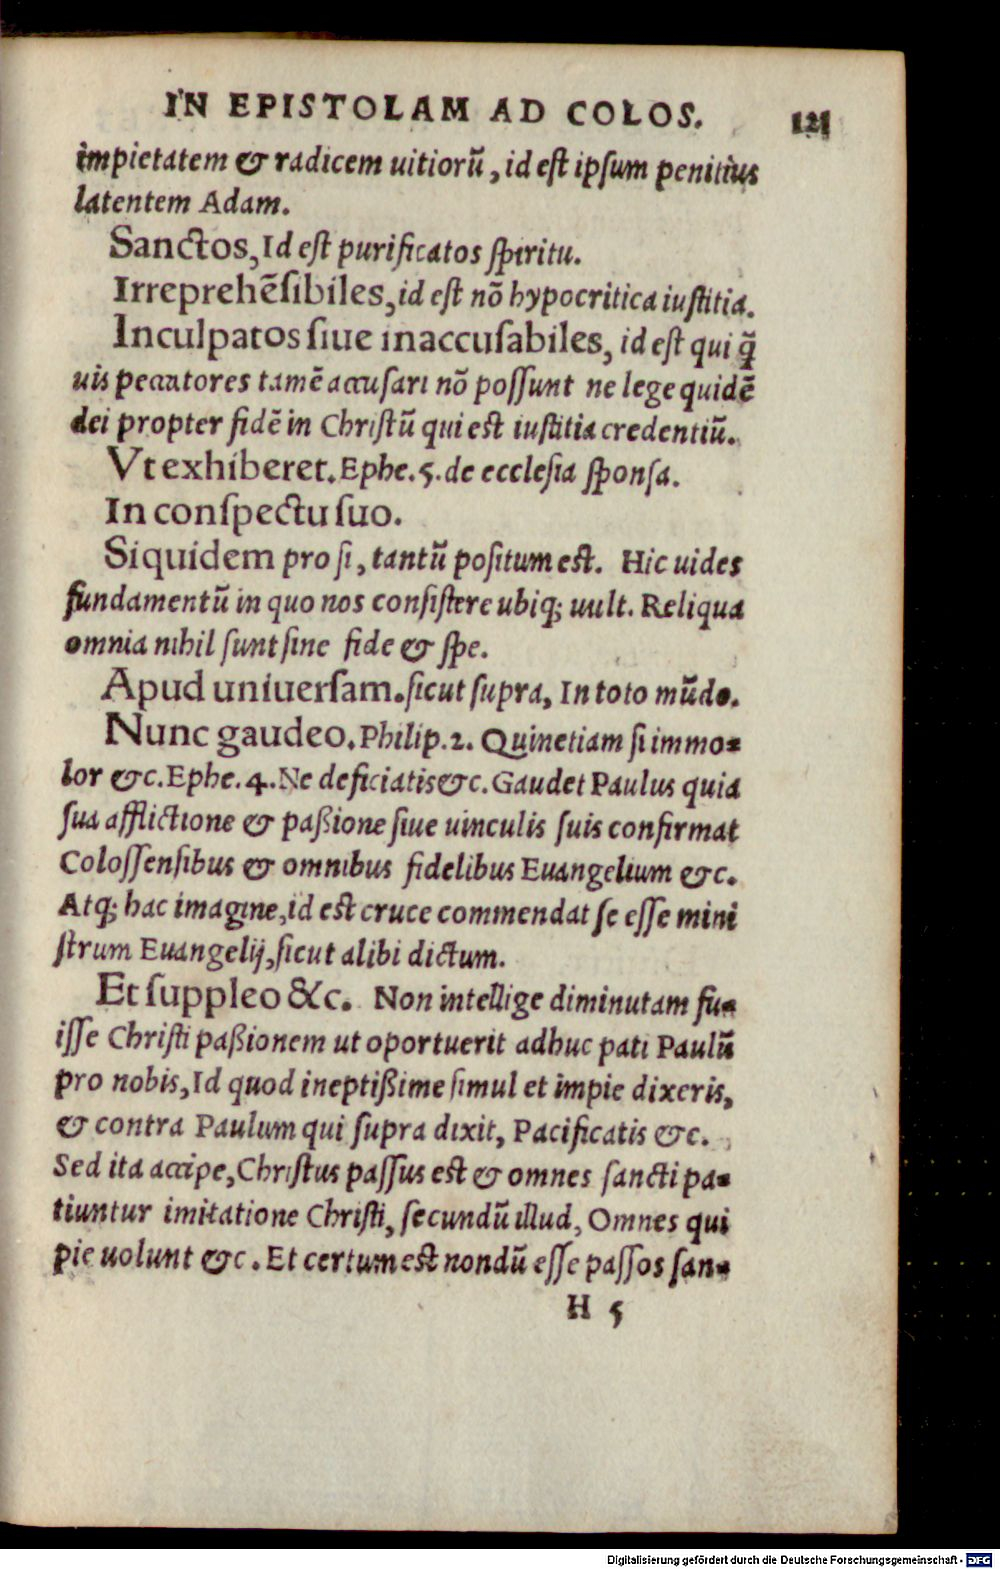 IN EPISTOLAM AD COLOS. 121
impietatem & radicem uitiorũ, id eſt ipſum penitius
latentem Adam.
Sanctos, Id eſt purificatos ſpiritu.
Irreprehẽſibiles, id eſt nõ hypocritica iuſtitia.
Inculpatos ſiue inaccuſabiles, id eſt qui q̃
uis peccatores tamẽ accuſari nõ poſſunt ne lege quidẽ
dei propter fidẽ in Chriſtũ qui eſt iuſtitia credentiũ.
Vt exhiberet. Ephe. 5. de eccleſia ſponſa.
In conſpectu ſuo.
Siquidem pro ſi, tantũ poſitum eſt. Hic uides
fundamentũ in quo nos conſiſtere ubiq; uult. Reliqua
omnia nihil ſunt ſine fide & ſpe.
Apud uniuerſam. ſicut ſupra, In toto mũdo.
Nunc gaudeo. Philip. 2. Quinetiam ſi immo-
lor &c. Ephe. 4. Ne deficiatis &c. Gaudet Paulus quia
ſua afflictione & paßione ſiue uinculis ſuis confirmat
Coloſſenſibus & omnibus fidelibus Euangelium &c.
Atq; hac imagine, id eſt cruce commendat ſe eſſe mini
ſtrum Euangelij, ſicut alibi dictum.
Et ſuppleo &c. Non intellige diminutam fu-
iſſe Chriſti paßionem ut oportuerit adhuc pati Paulũ
pro nobis, Id quod ineptißime ſimul et impie dixeris,
& contra Paulum qui ſupra dixit, Pacificatis &c.
Sed ita accipe, Chriſtus paſſus eſt & omnes ſancti pa-
tiuntur imitatione Chriſti, ſecundũ illud, Omnes qui
pie uolunt &c. Et certum eſt nondũ eſſe paſſos ſan-
H 5
Digitalisierung gefördert durch die Deutsche Forschungsgemeinschaft - DFG